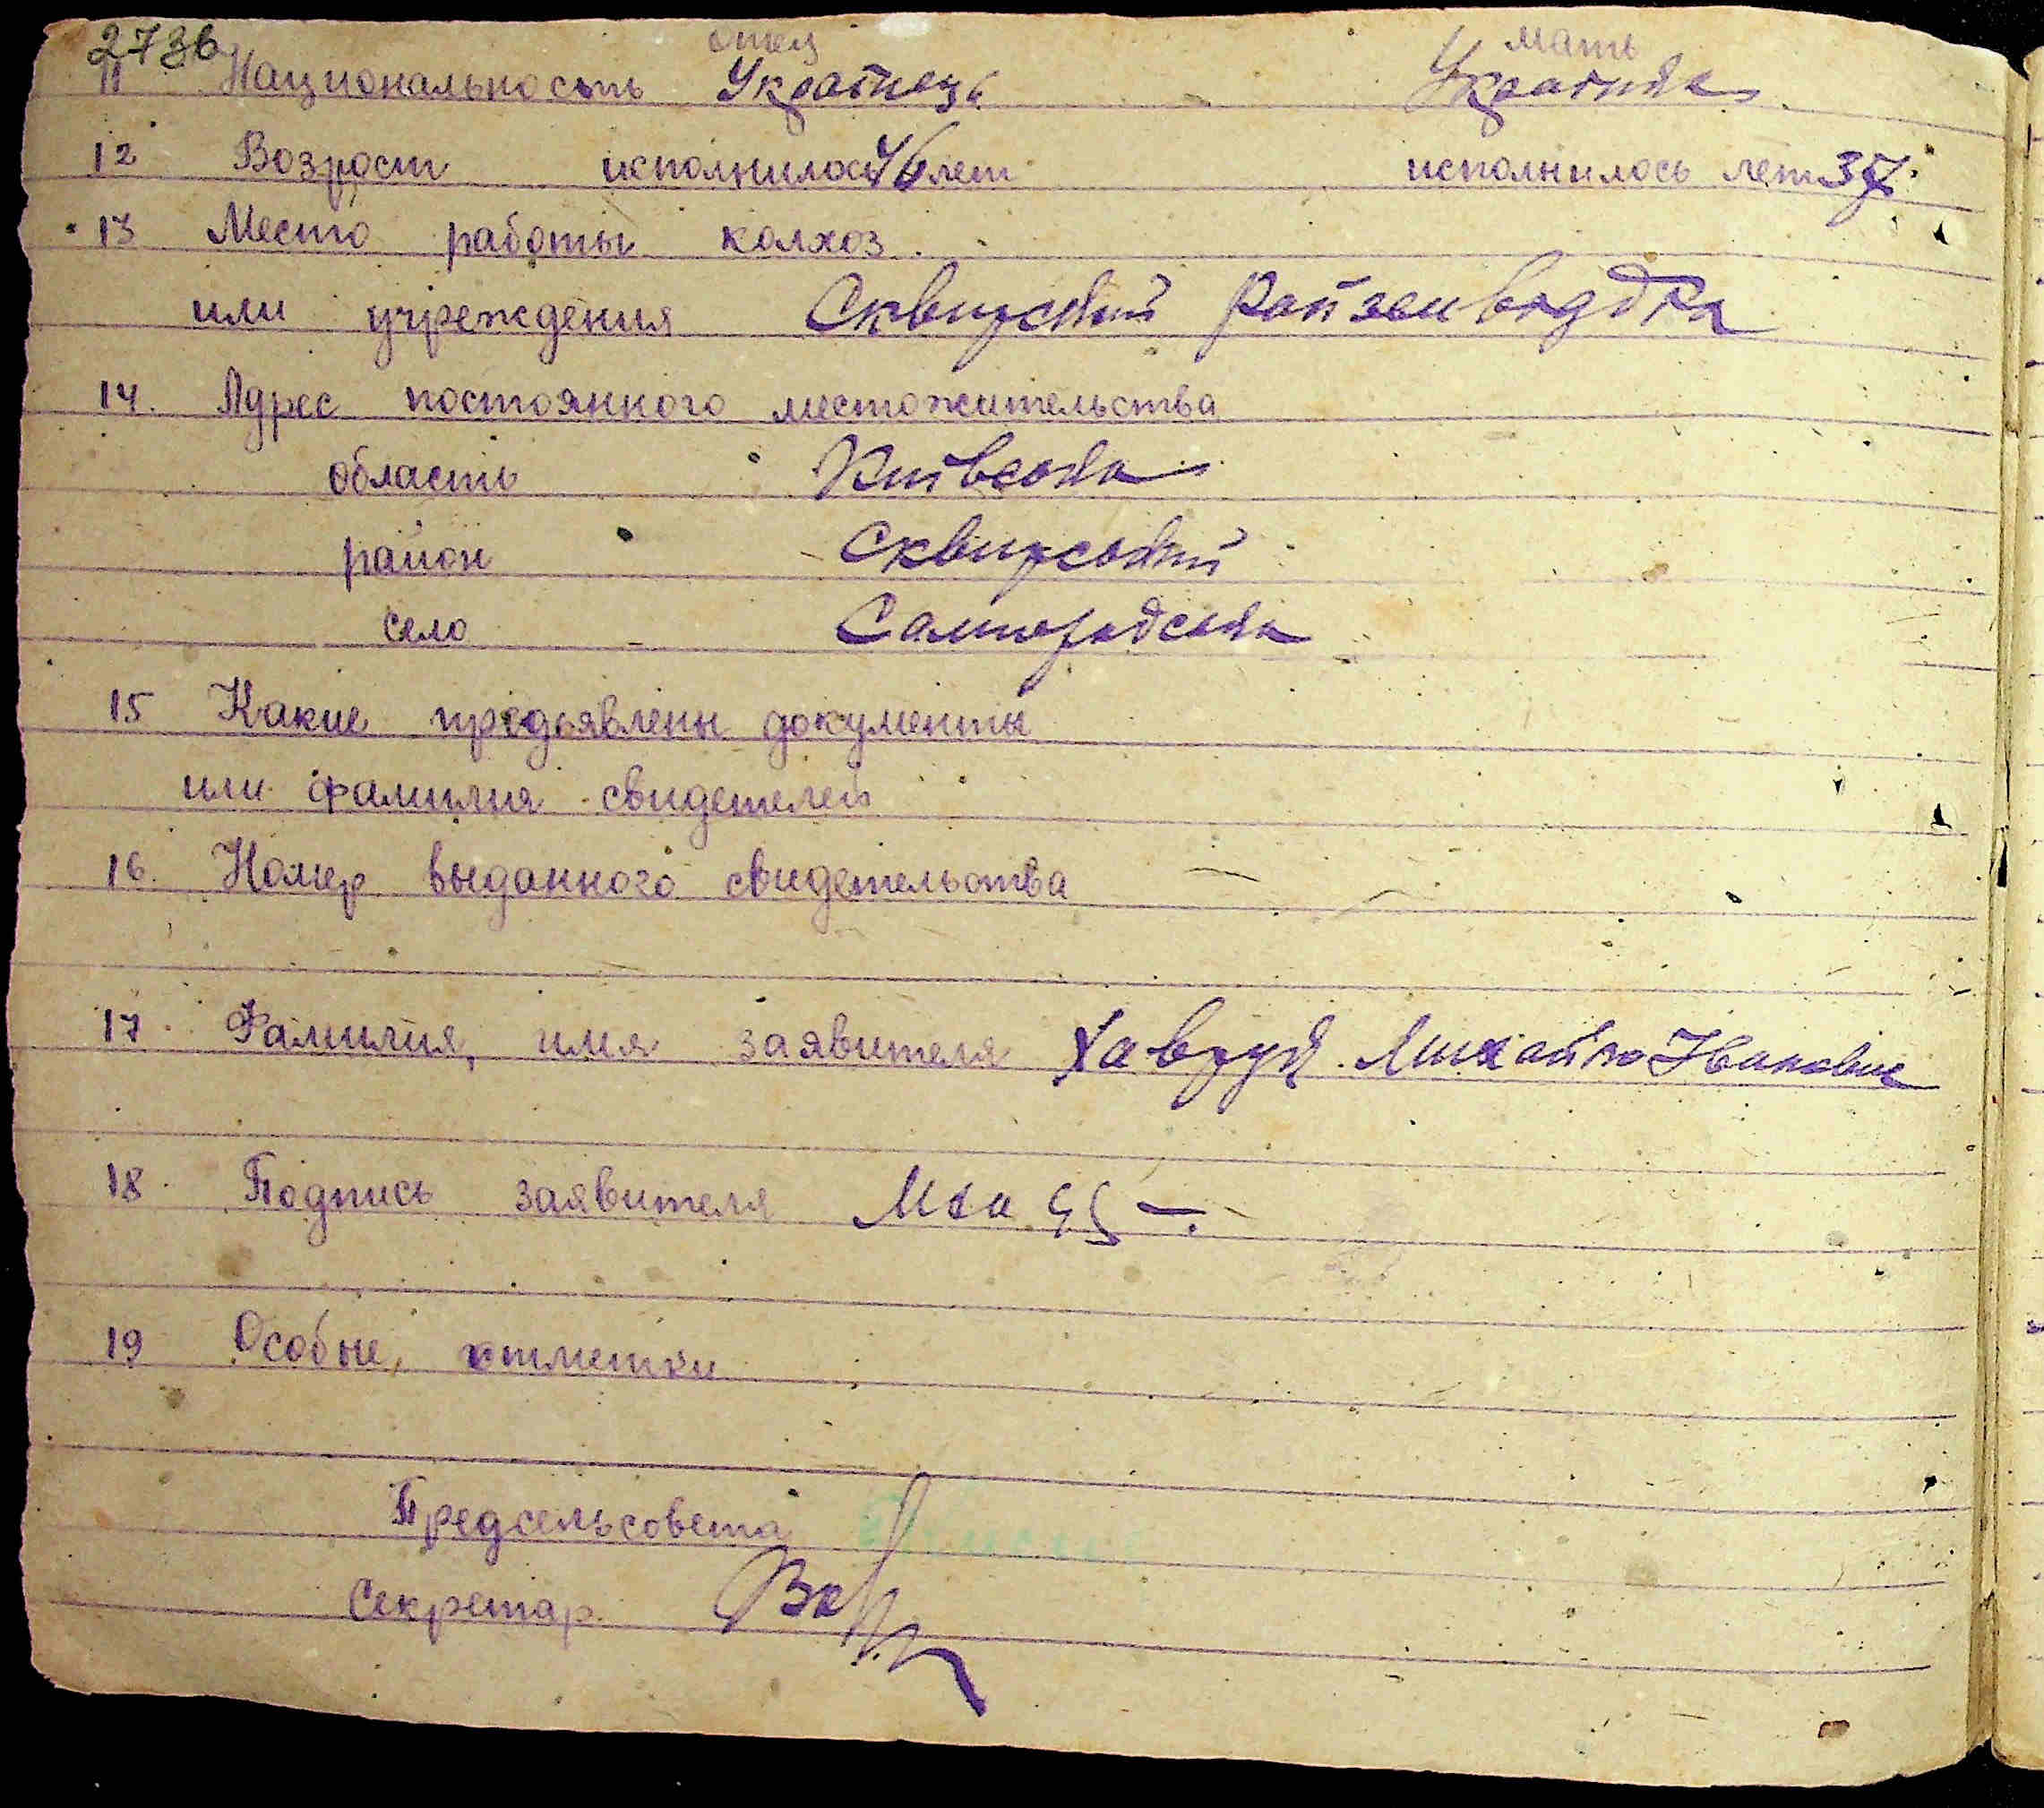 273б
отец мать
11 Национальность Українець Українка
12 Возраст исполнилось 46 лет исполнилось лет 37
13 Место работы колхоз
или учреждения Сквирский
14. Адрес постоянного местожительства
область Київська
район Сквирський
село Самгородська
15 Какие предъявлены документы
или фамилия свидетелей
16. Номер выданного свидетельства
17. Фамилия, имя заявителя Михайло Иванович
18. Подпись заявителя
19 Особые, отметки
Предсельсовета
Секретар.